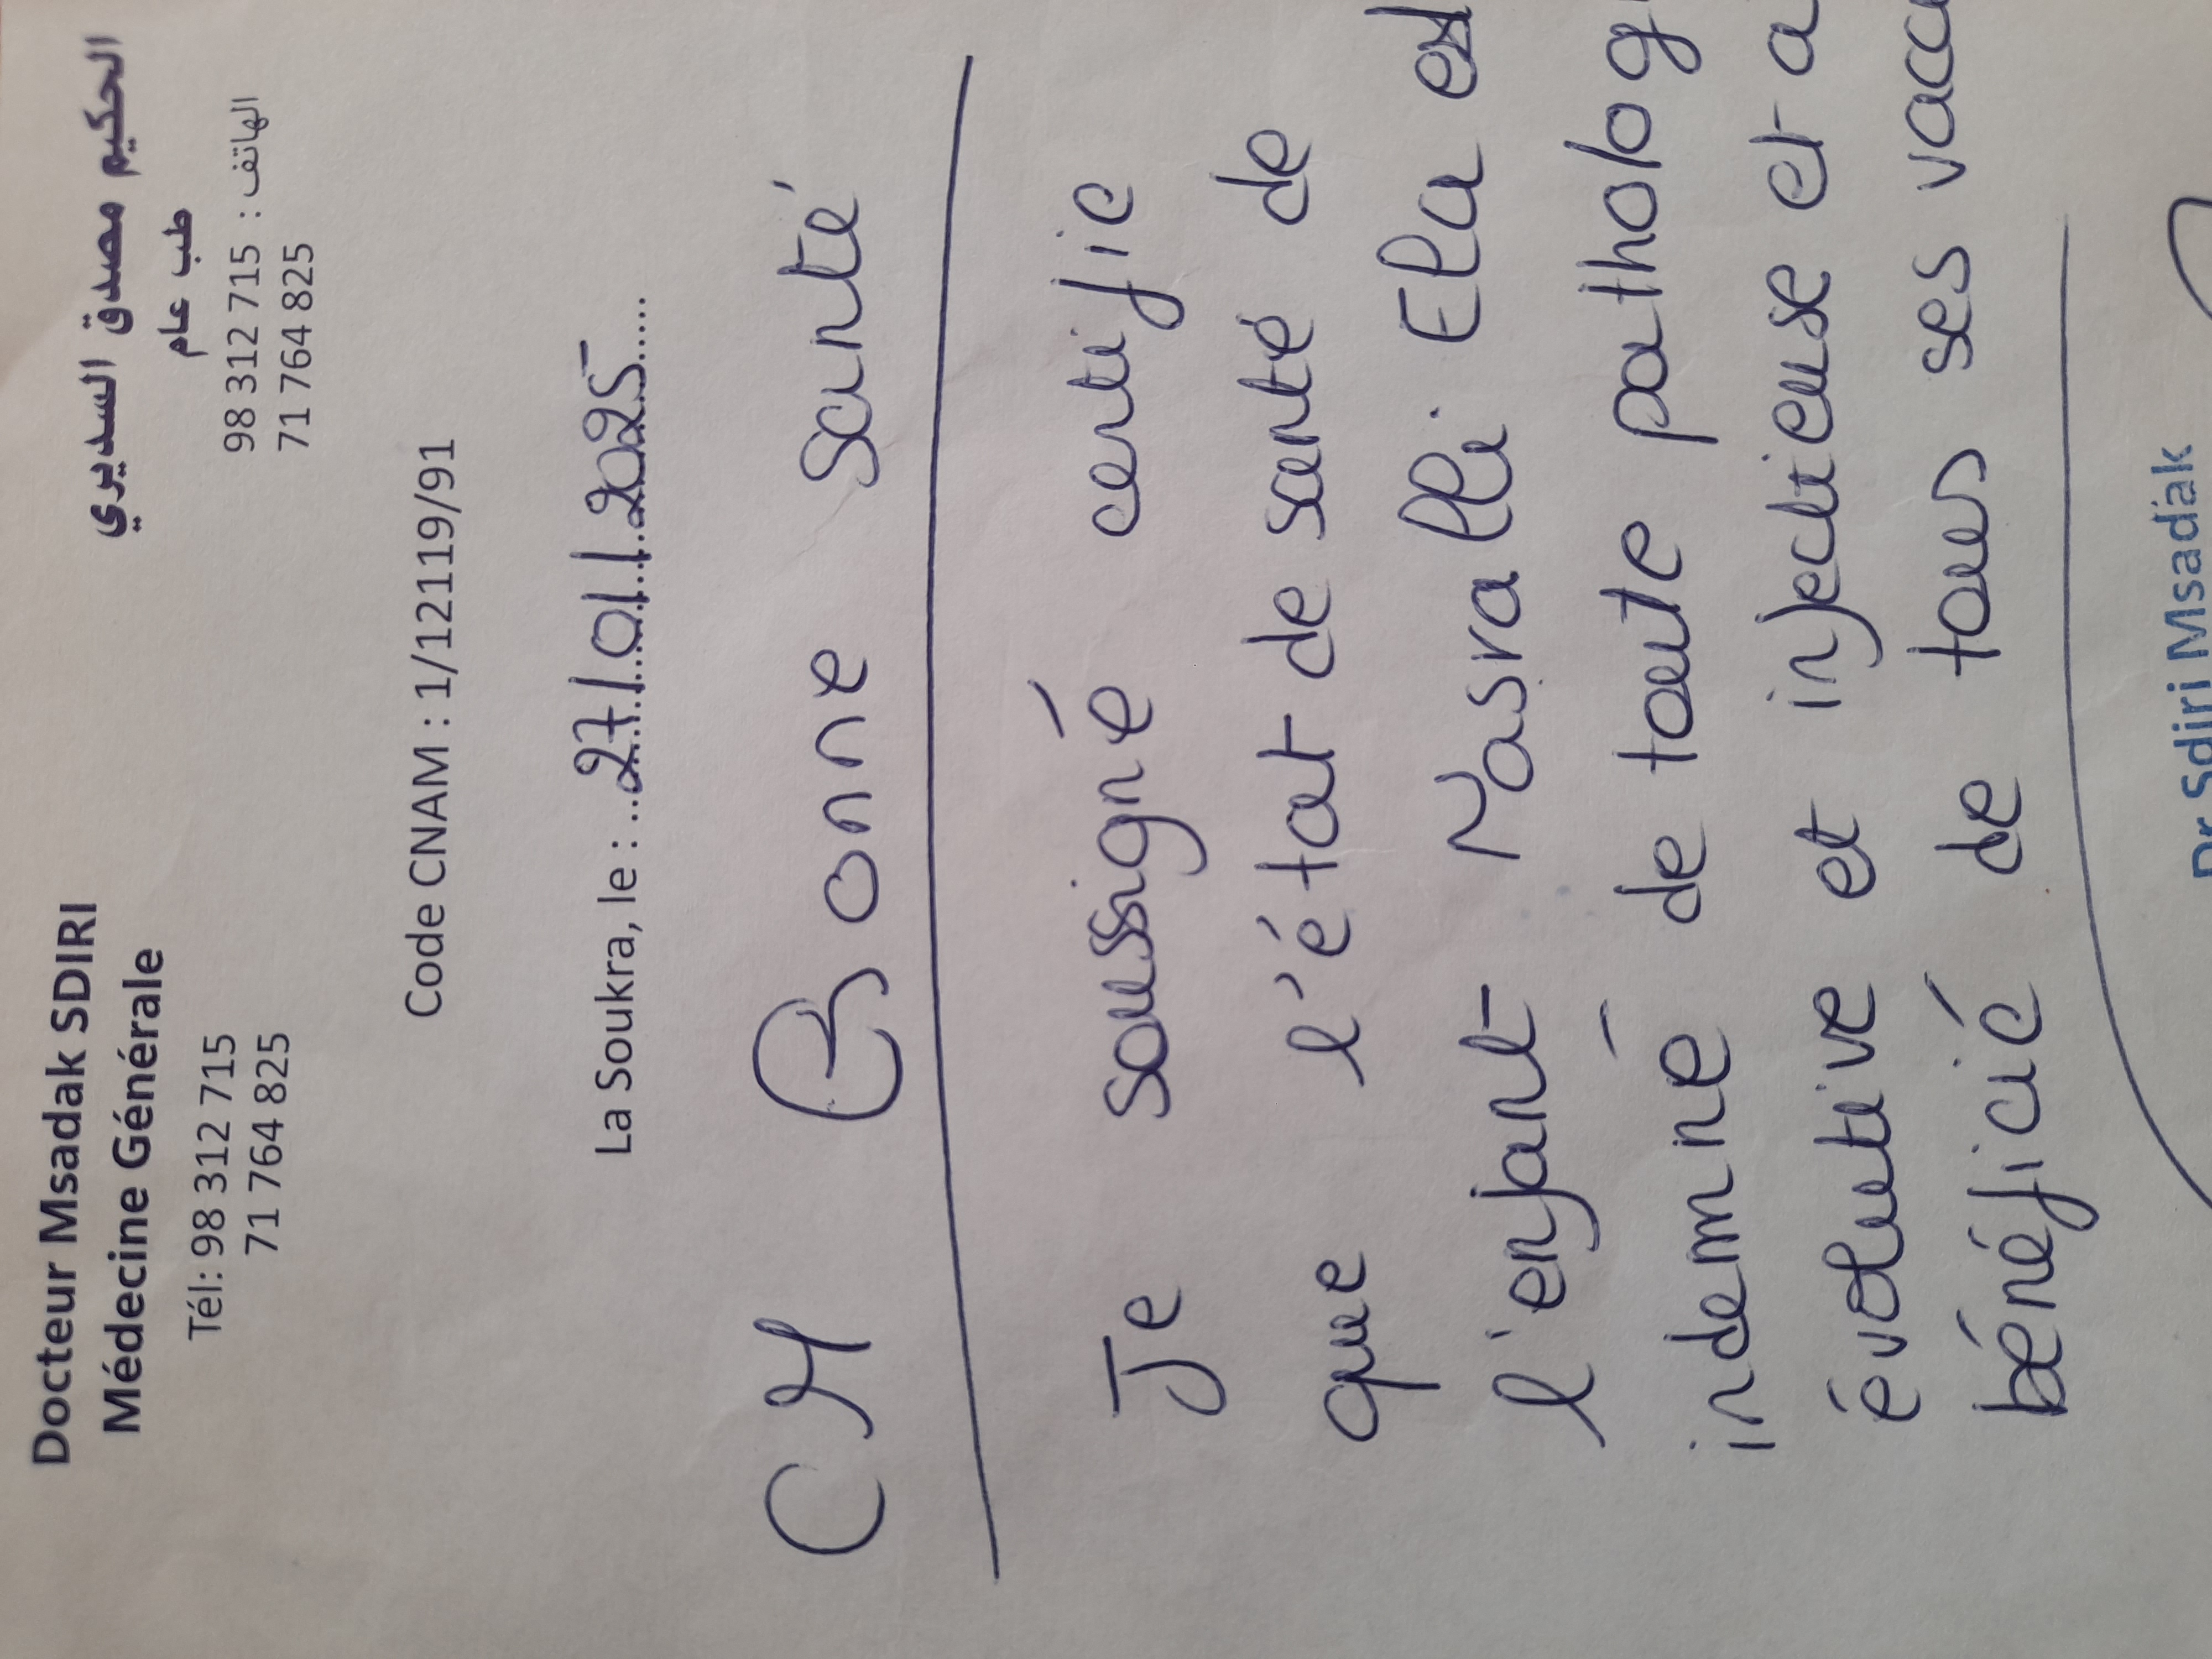 Docteur Msadak SDIRI
Médecine Générale
Tél: 98 312 715
71 764 825
الحكيم مصدق السديري
طب عام
الهاتف : 98 312 715
71 764 825
Code CNAM : 1/12119/91
La Soukra, le : 27/01/2025
CM Bonne santé
Je soussigné certifie
que l'état de santé de
l'enfant Nasralli Ela est
indemne de toute patholog
évolutive et infectieuse et a
bénéficié de tous ses vacci
Dr Sdiri Msadak